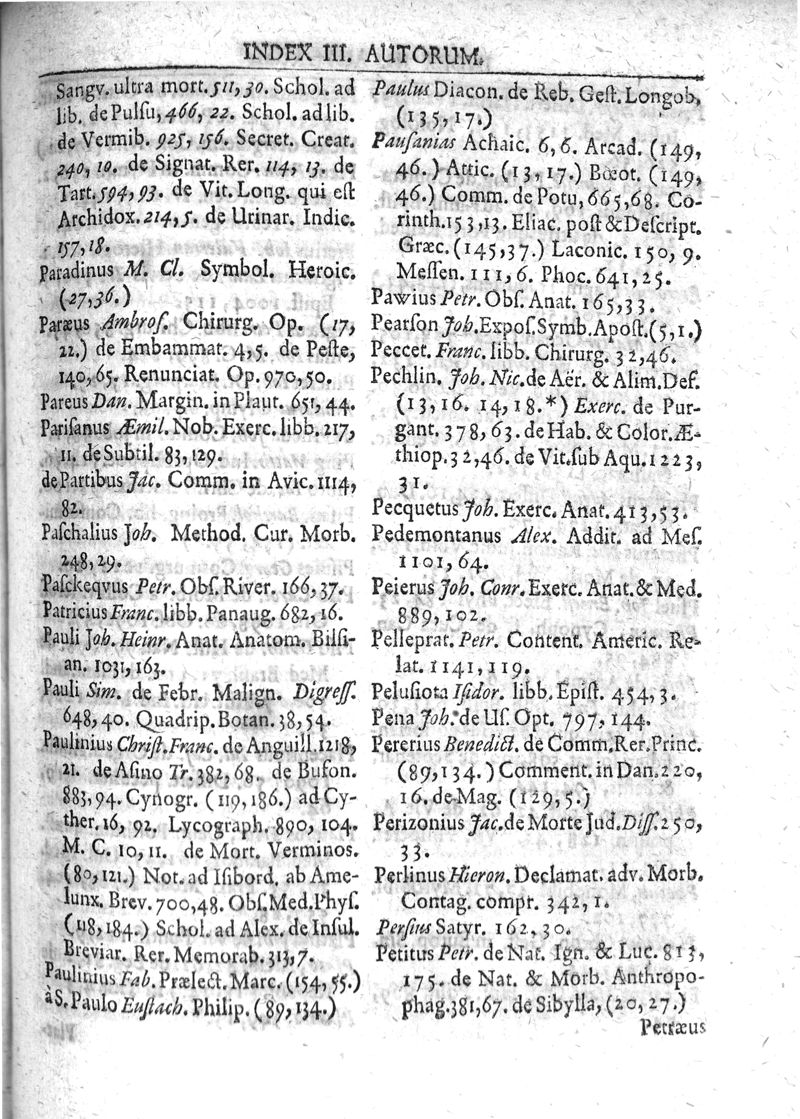 INDEX III. AUTORUM.
Sangv. ultra mort. 511, 30. Schol. ad
lib. de Pulſu, 466, 22. Schol. ad lib.
de Vermib. 925, 156. Secret. Creat.
240, 10. de Signat. Rer. 114, 13. de
Tart. 594, 93. de Vit. Long. qui eſt
Archidox. 214, 5. de Urinar. Indic.
157, 18.
Paradinus M. Cl. Symbol. Heroic.
(27, 36.)
Paræus Ambroſ. Chirurg. Op. (17,
22.) de Embammat. 4, 5. de Peſte,
140, 65. Renunciat. Op. 970, 50.
Pareus Dan. Margin. in Plaut. 651, 44.
Pariſanus Æmil. Nob. Exerc. libb. 217,
11. de Subtil. 83, 129.
de Partibus Jac. Comm. in Avic. 1114,
82.
Paſchalius Joh. Method. Cur. Morb.
248, 29.
Paſckeqvus Petr. Obſ. River. 166, 37.
Patricius Franc. libb. Panaug. 682, 16.
Pauli Joh. Heinr. Anat. Anatom. Bilſi-
an. 1031, 163.
Pauli Sim. de Febr. Malign. Digreſſ.
648, 40. Quadrip. Botan. 38, 54.
Paulinius Chriſt. Franc. de Anguill. 1218,
21. de Aſino Tr. 382, 68. de Bufon.
883, 94. Cynogr. (119, 186.) ad Cy-
ther. 16, 92. Lycograph. 890, 104.
M. C. 10, 11. de Mort. Verminos.
(80, 121.) Not. ad Iſibord. ab Ame-
lunx. Brev. 700, 48. Obſ. Med. Phyſ.
(118, 184.) Schol. ad Alex. de Inſul.
Breviar. Rer. Memorab. 313, 7.
Paulinius Fab. Prælect. Marc. (154, 55.)
à S. Paulo Euſtach. Philip. (89, 134.)
Paulus Diacon. de Reb. Geſt. Longob.
(135, 17.)
Pauſanias Achaic. 6, 6. Arcad. (149,
46.) Attic. (13, 17.) Bœot. (149,
46.) Comm. de Potu, 665, 68. Co-
rinth. 153, 13. Eliac. poſt & Deſcript.
Græc. (145, 37.) Laconic. 150, 9.
Meſſen. 111, 6. Phoc. 641, 25.
Pawius Petr. Obſ. Anat. 165, 33.
Pearſon Joh. Expoſ. Symb. Apoſt. (5, 1.)
Peccet. Franc. libb. Chirurg. 32, 46.
Pechlin. Joh. Nic. de Aër. & Alim. Def.
(13, 16. 14, 18.*) Exerc. de Pur-
gant. 378, 63. de Hab. & Color. Æ-
thiop. 32, 46. de Vit. ſub Aqu. 1223,
31.
Pecquetus Joh. Exerc. Anat. 413, 53.
Pedemontanus Alex. Addit. ad Meſ.
1101, 64.
Peierus Joh. Conr. Exerc. Anat. & Med.
889, 102.
Pelleprat. Petr. Content. Americ. Re-
lat. 1141, 119.
Peluſiota Iſidor. libb. Epiſt. 454, 3.
Pena Joh. de Uſ. Opt. 797, 144.
Pererius Benedict. de Comm. Rer. Princ.
(89, 134.) Comment. in Dan. 220,
16. de Mag. (129, 5.)
Perizonius Jac. de Morte Jud. Diſſ. 250,
33.
Perlinus Hieron. Declamat. adv. Morb.
Contag. compr. 342, 1.
Perſius Satyr. 162, 30.
Petitus Petr. de Nat. Ign. & Luc. 813,
175. de Nat. & Morb. Anthropo-
phag. 381, 67. de Sibylla, (20, 27.)
Petræus